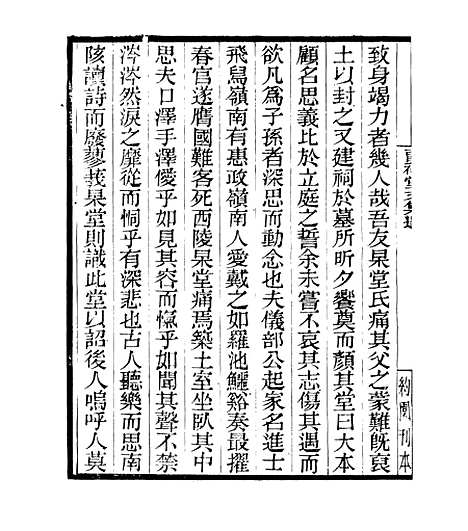 致身竭力者幾人哉吾友杲堂氏痛其父之蒙難旣裒
土以封之又建祠於墓所昕夕饗奠而顏其堂曰大本
顧名思義比於立庭之誓余未嘗不哀其志傷其遇而
欲凡爲子孫者深思而動念也夫儀部公起家名進士
飛舄嶺南有惠政嶺南人愛戴之如羅池鱷谿奏最擢
春官遂膺國難客死西陵杲堂痛焉築土室坐臥其中
思夫口澤手澤僾乎如見其容而愾乎如聞其聲不禁
涔涔然淚之靡從而恫乎有深悲也古人聽樂而思南
陔讀詩而廢蓼莪杲堂則識此堂以詔後人嗚呼人莫
約園刊本